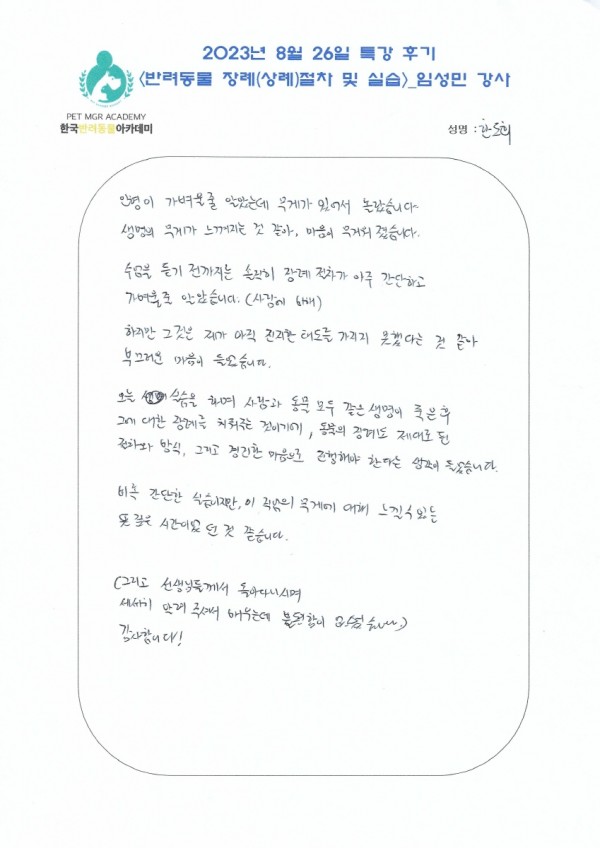 2023년 8월 26일 특강 후기
<반려동물 장례(상례)절차 및 실습>_임성민 강사
PET MGR ACADEMY
한국반려동물아카데미
성명 :
인형이 가벼울줄 알았는데 무게가 있어서 놀랐습니다.
생명의 무게가 느껴지는 것 같아, 마음이 무거워 졌습니다.
수업을 듣기 전까지는 솔직히 장례 절차가 아주 간단하고
가벼울줄 알았습니다. (사람에 비해)
하지만 그것은 제가 아직 진지한 태도를 가지지 못했다는 것 같아
부끄러운 마음이 들었습니다.
오늘 실습을 하며 사람과 동물 모두 같은 생명이 죽은 후
그에 대한 장례를 치뤄주는 것이기에, 동물의 장례도 제대로 된
절차와 방식, 그리고 경건한 마음으로 진행해야 한다는 생각이 들었습니다.
비록 간단한 실습이지만, 이 직업의 무게에 대해 느낄수 있는
뜻 깊은 시간이었 던 것 같습니다.
(그리고 선생님들께서 돌아다니시며
세세히 알려 주셔서 배우는데 불편함이 없었습니다.)
감사합니다!